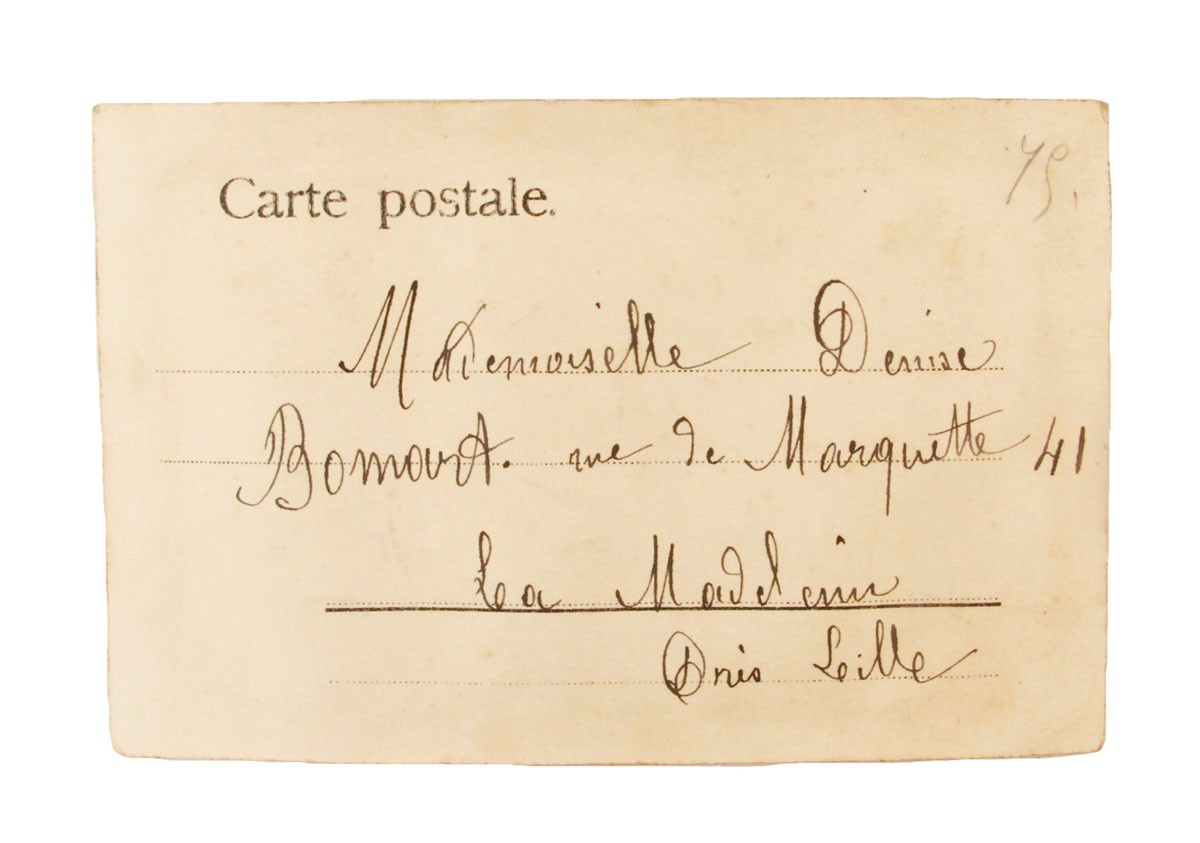 75.
Carte postale.
Mademoiselle Denise
Bomart. rue de Marquette 41
La Madeleine
Près Lille